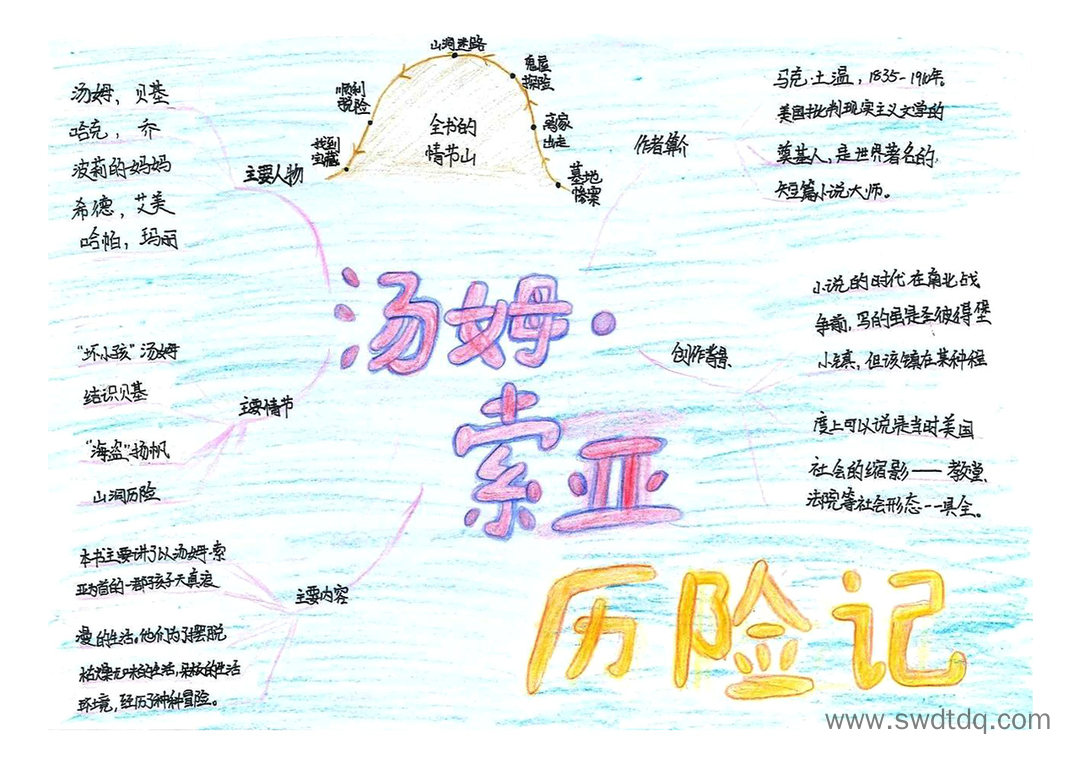 山洞迷路
鬼屋
探险
离家
出走
墓地
惨案
顺利
脱险
找到
宝藏
全书的
情节山
主要人物
汤姆，贝基
哈克，乔
波莉的妈妈
希德，艾美
哈帕，玛丽
作者简介
马克·土温，1835-1910年。
美国批判现实主义文学的
奠基人，是世界著名的
短篇小说大师。
汤姆·
索亚
历险记
主要情节
“坏小孩”汤姆
结识贝基
“海盗”扬帆
山洞历险
创作背景
小说的时代在南北战
争前，写的虽是圣彼得堡
小镇，但该镇在某种程
度上可以说是当时美国
社会的缩影——教堂、
法院等社会形态一一具全。
主要内容
本书主要讲了以汤姆·索
亚为首的一群孩子天真浪
漫的生活。他们为了摆脱
枯燥无味的生活，呆板的生活
环境，经历了种种冒险。
www.swdtdq.com